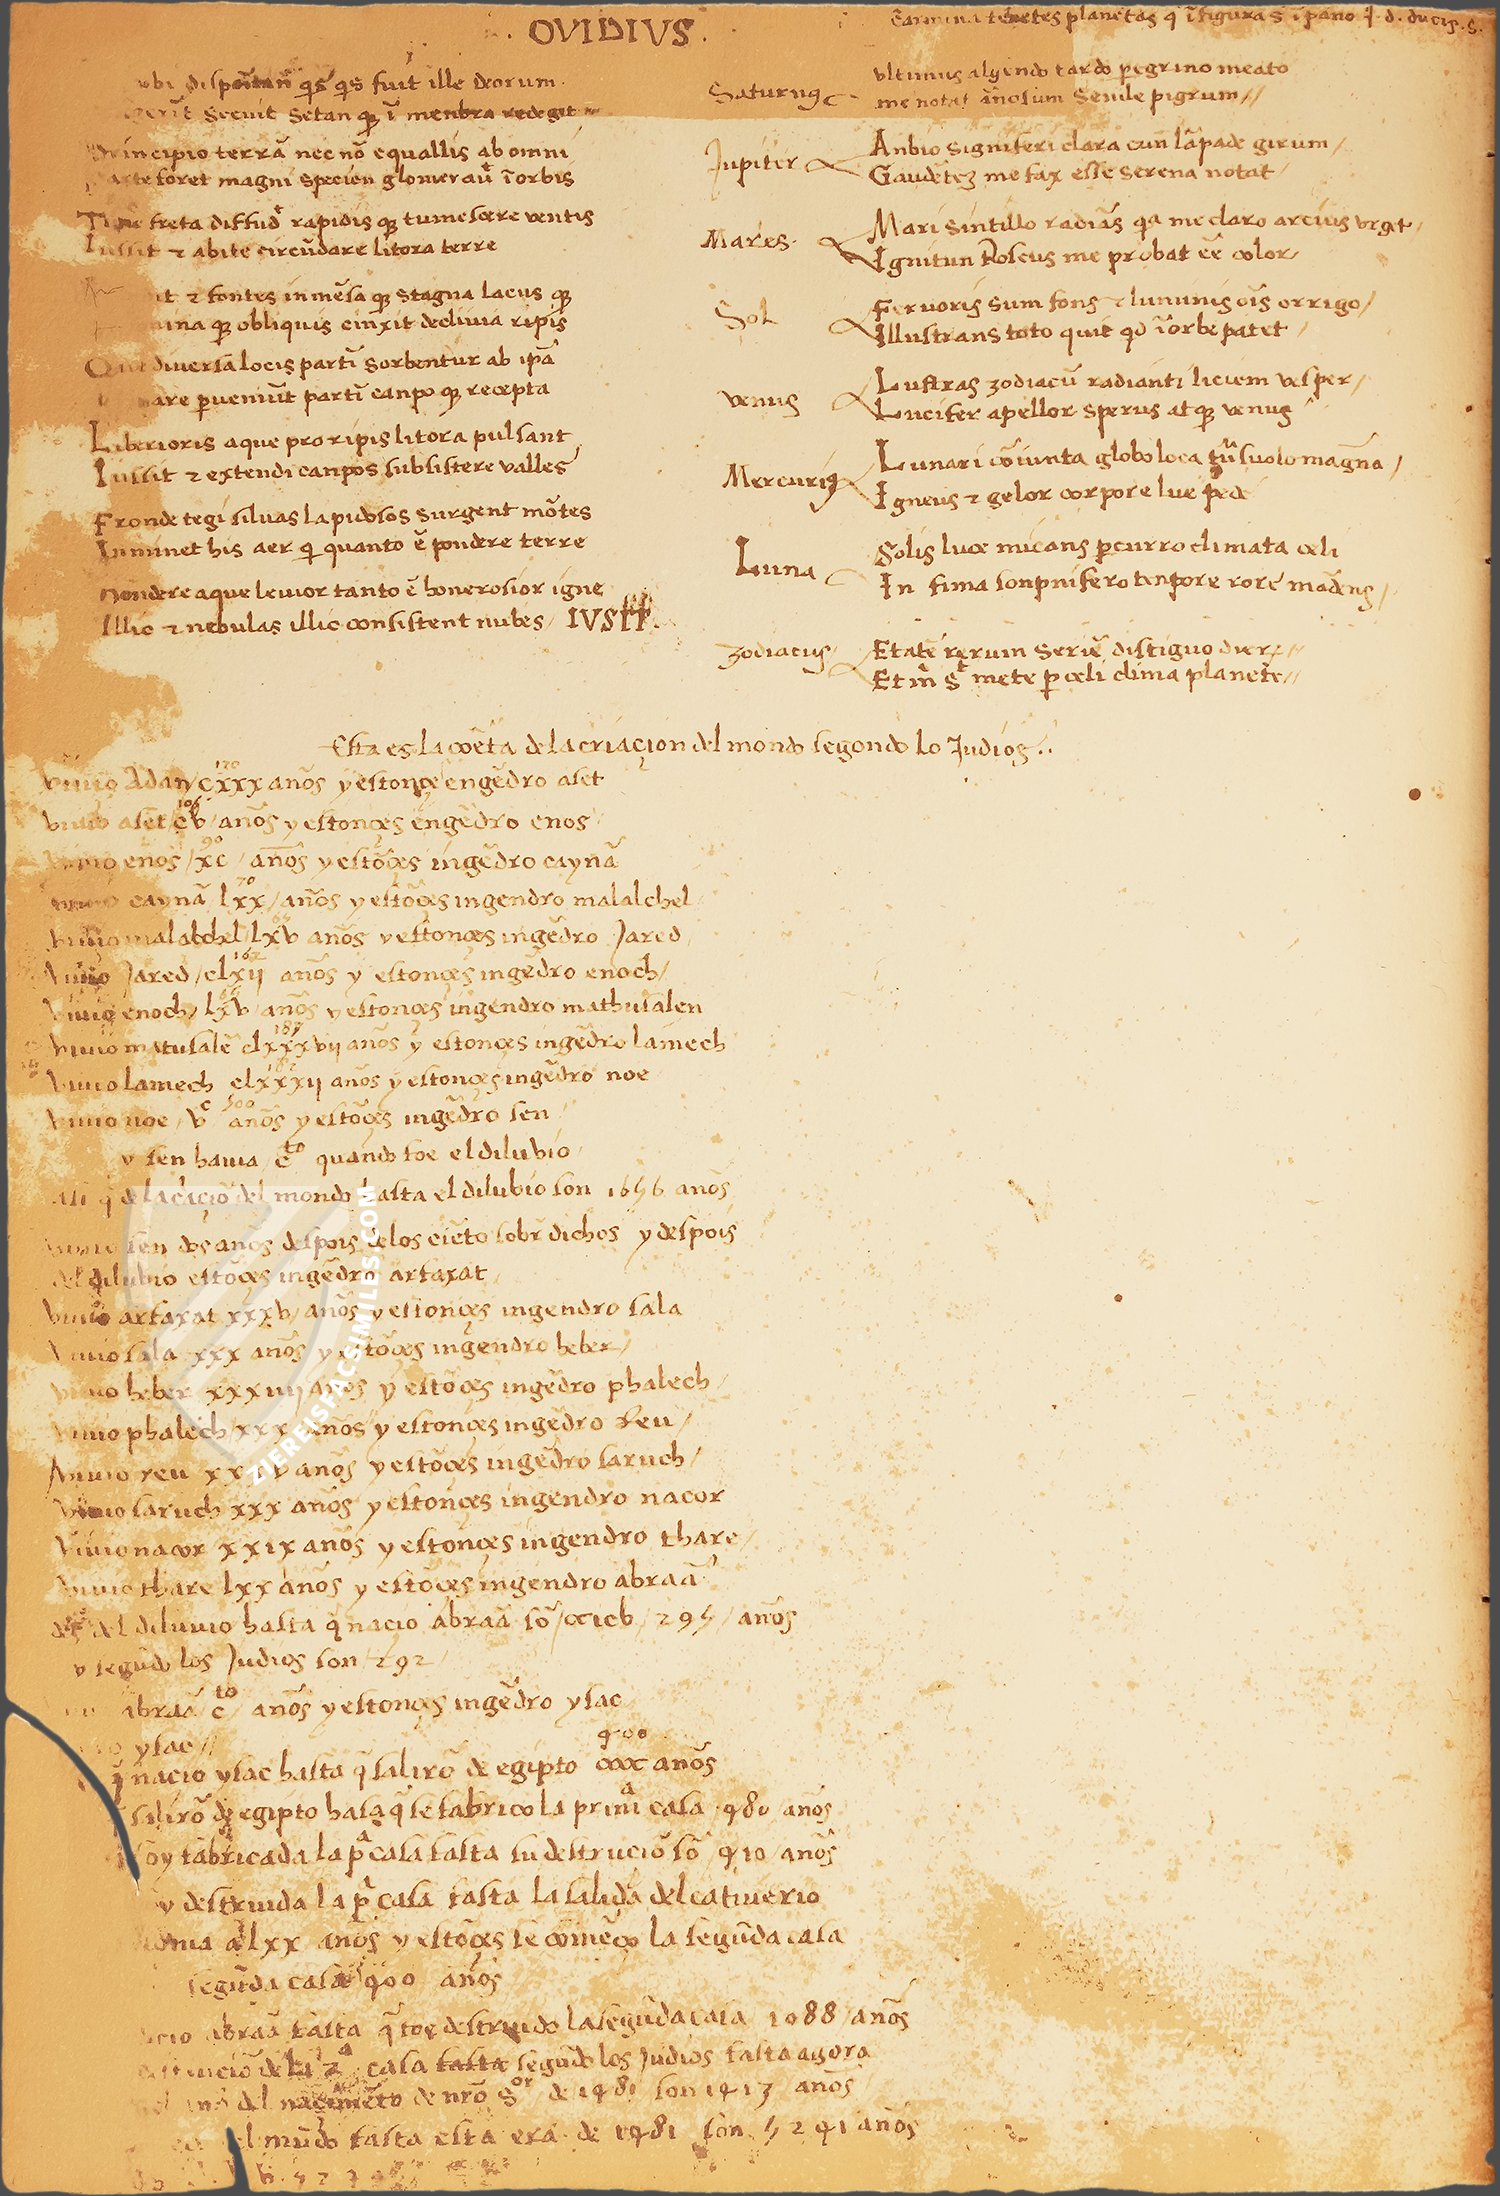 . OVIDIVS .
ubi dispositan̄ q̄s q̄s fuit ille deorum
secuit setan qꝫ ī menbra redegit
Principio terrā nec nō equallis ab omni
parte foret magni specien glomerauꝫ̄ ī orbis
Tum freta diffudꝫ rapidis qꝫ tumescere ventis
Iussit ⁊ abite circūdare litora terre
⁊ fontes inmēsa qꝫ stagna lacus qꝫ
mina qꝫ obliquis cinxit decliuia ripis
Que diversa locis partī sorbentur ab ipā
mare perueniūt partī canpo qꝫ recepta
Liberioris aque pro ripis litora pulsant
Iussit ⁊ extendi canpos subsistere valles
Fronde tegi siluas lapidosos surgent mōtes
Inminet his aer qi quanto ē pondere terre
pondere aque leuior tanto ē honerosior igne
Illic ⁊ nebulas illic consistent nubes / IVSīt.
Carmina tenētes planetas q̄ ī figuras ī pano .d. ducis . s.
Saturnꝰ
vltimus algendo tardo pegrino meato
me notat ānosum senile pigrum //
Jupiter
Anbio signiferi clara cun lāpade girum /
Gaudētez me fax esse serena notat /
Mares.
Mari sintillo radiās qa me claro arcius vrget /
Ignitun roseus me probat ēē color /
Sol
Feruoris sum fons ⁊ luminis ois orrigo /
Illustrans toto quit qd ī orbe patet /
venus
Lustras zodiacū radianti liciem vesper /
Lucifer apellor sperus at qꝫ venus
Mercuriꝰ
Lunari cōiunta globo loca tūsuolo magna /
Igneus ⁊ gelor corpore lue pede
Luna
Solis luce micans percurro climata celi
In fima sonpnifero tenpore rore madens /
zodiacus
Etatē rerum seriē distiguo dierꝝ //
Et mī st mete per celi clima planete //
Esta es la cuēta de la criaçion del mondo segondo lo Judios ..
viuio Adan / cxxx años y estonçe engēdro aset
130
viuio aset / cv / años y estonçes engēdro enos
105
viuio enos / xc / años y estōçes ingēdro caynā
90
viuio caynā lxx / años y estōçes ingendro malalchel
70
viuio malalchel lxv años y estonçes ingēdro Jared
65
viuio Jared / clxij años y estonçes ingēdro enoch /
162
viuio enoch / lxv / años y estonçes ingendro mathusalen
65
viuio matusalē clxxxvij años y estonçes ingēdro lamech
187
viuio lamech clxxxij años y estonçes ingēdro noe
viuio noe / vᶜ años y estōçes ingēdro sen
500
y sen hauia / cᵗᵒ quando foe el dilubio /
asi q̄ de la cíacio del mondo hasta el dilubio son 1656 años
viuio sen dos años despois de los ciēto sobrdichos y despois
del dilubio estōçes ingēdro artaxat
viuio artaxat xxxv / años y estonçes ingendro sala
viuio sala xxx años y estōçes ingendro heber /
viuio heber xxxiiij años y estōçes ingēdro phalech /
viuio phalech / xxx años y estonçes ingēdro Reu /
viuio reu xxxv años y estōçes ingēdro saruch /
viuio saruch xxx años y estonçes ingendro nacor
viuio nacor / xxix años y estonçes ingendro thare /
viuio thare lxx años y estōçes ingendro abraā
del diluuio hasta q̄ nacio abraā sō / ccxcv / 295 / años
y segūdo los Judios son / 292 /
abraā cᵗᵒ años y estonçes ingēdro ysac
ysac //
q̄ nacio ysac hasta q̄ salirō de egipto cccc años
400
salirō de egipto hasa q̄ se fabrico la primᵃ casa 480 años
y fabricada la pᵃ casa fasta su destrucio sō 410 / años
y destruida la pᵃ casa fasta la salida del catiuerio
lxx años y estōçes se comēço la segūda casa
segūda casa 400 años
abraā fasta q̄ foe destruido la segūda casa 1088 / años
de la 2ᵃ casa fasta segūdo los Judios fasta agora
del nacimēto de nrō sᵒʳ de 1481 son 1413 años
el mūdo fasta esta era de 1481 son 5241 años
ZIEREISFACSIMILES.COM